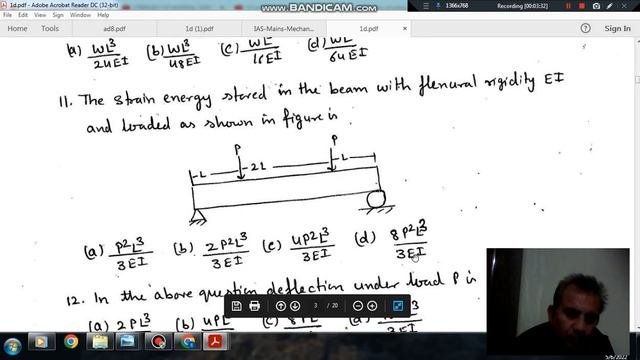 1d.pdf - Adobe Acrobat Reader DC (32-bit)
RECORDED WITH
BANDICAM.COM
1366x768
00:03:32
Home Tools ad8.pdf 1d (1).pdf IAS-Mains-Mechan... 1d.pdf Sign In
(a) WL³/24EI (b) WL³/48EI (c) WL/16EI (d) WL/64EI
11. The strain energy stored in the beam with flexural rigidity EI
and loaded as shown in figure is
P P
L 2L L
(a) P²L³/3EI (b) 2P²L³/3EI (c) 4P²L³/3EI (d) 8P²L³/3EI
12. In the above question deflection under load P is
3 / 20
(a) 2PL³ (b) 4PL (c) 8PL (d)
3EI
5/6/2022